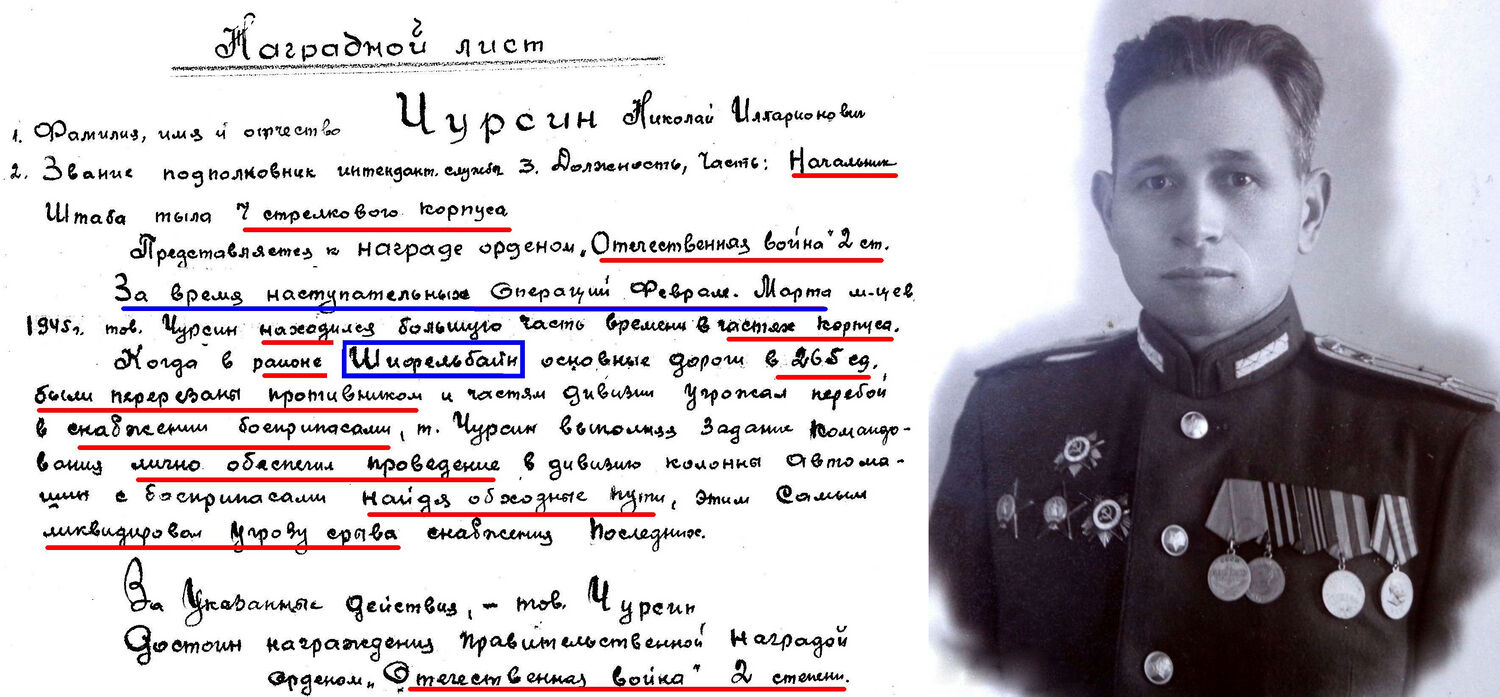 Наградной лист
1. Фамилия, имя и отчество Чурсин Николай Илларионович
2. Звание подполковник интендант. службы 3. Должность, часть: Начальник
Штаба тыла 7 стрелкового корпуса
Представляется к награде орденом „Отечественная война" 2 ст.
За время наступательных операций Феврал. Марта м-цев
1945г. тов. Чурсин находился большую часть времени в частях корпуса.
Когда в районе Шифельбайн основные дороги в 265 сд,
были перерезаны противником и частям дивизии угрожал перебой
в снабжении боеприпасами, т. Чурсин выполняя задание командо-
вания лично обеспечил проведение в дивизию колонны автома-
шин с боеприпасами найдя обходные пути, этим самым
ликвидировал угрозу срыва снабжения последних.
За указанные действия, – тов. Чурсин,
Достоин награждения правительственной наградой
орденом „Отечественная война" 2 степени.